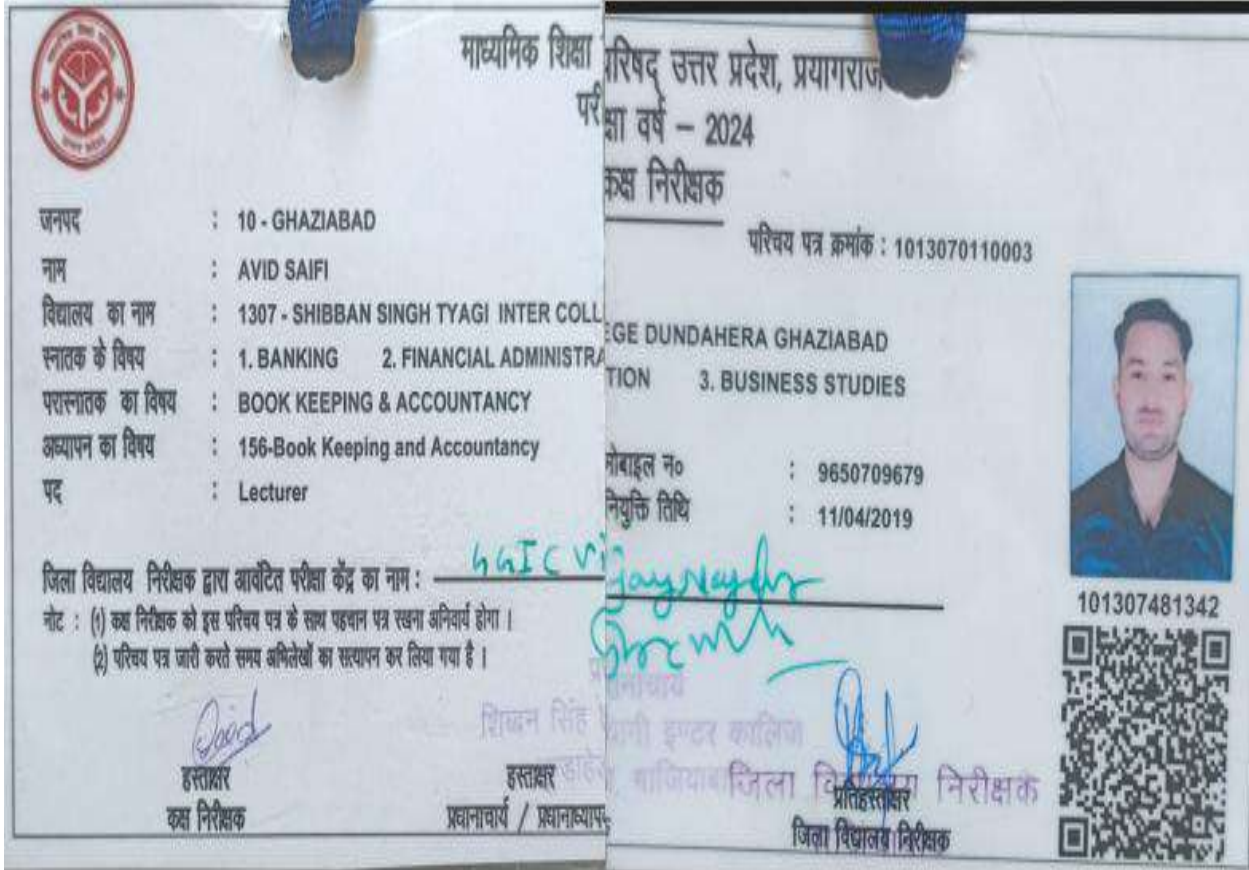 माध्यमिक शिक्षा परिषद् उत्तर प्रदेश, प्रयागराज
परीक्षा वर्ष – 2024
कक्ष निरीक्षक
परिचय पत्र क्रमांक : 1013070110003
जनपद : 10 - GHAZIABAD
नाम : AVID SAIFI
विद्यालय का नाम : 1307 - SHIBBAN SINGH TYAGI INTER COLLEGE DUNDAHERA GHAZIABAD
स्नातक के विषय : 1. BANKING 2. FINANCIAL ADMINISTRATION 3. BUSINESS STUDIES
परास्नातक का विषय : BOOK KEEPING & ACCOUNTANCY
अध्यापन का विषय : 156-Book Keeping and Accountancy
मोबाइल न० : 9650709679
पद : Lecturer
नियुक्ति तिथि : 11/04/2019
जिला विद्यालय निरीक्षक द्वारा आवंटित परीक्षा केंद्र का नाम : GGIC Vijay Nagar
नोट : (1) कक्ष निरीक्षक को इस परिचय पत्र के साथ पहचान पत्र रखना अनिवार्य होगा ।
(2) परिचय पत्र जारी करते समय अभिलेखों का सत्यापन कर लिया गया है ।
101307481342
प्रधानाचार्य
शिब्बन सिंह त्यागी इण्टर कालिज
गाजियाबाद
जिला विद्यालय निरीक्षक
हस्ताक्षर
कक्ष निरीक्षक
हस्ताक्षर
प्रधानाचार्य / प्रधानाध्यापक
प्रतिहस्ताक्षर
जिला विद्यालय निरीक्षक